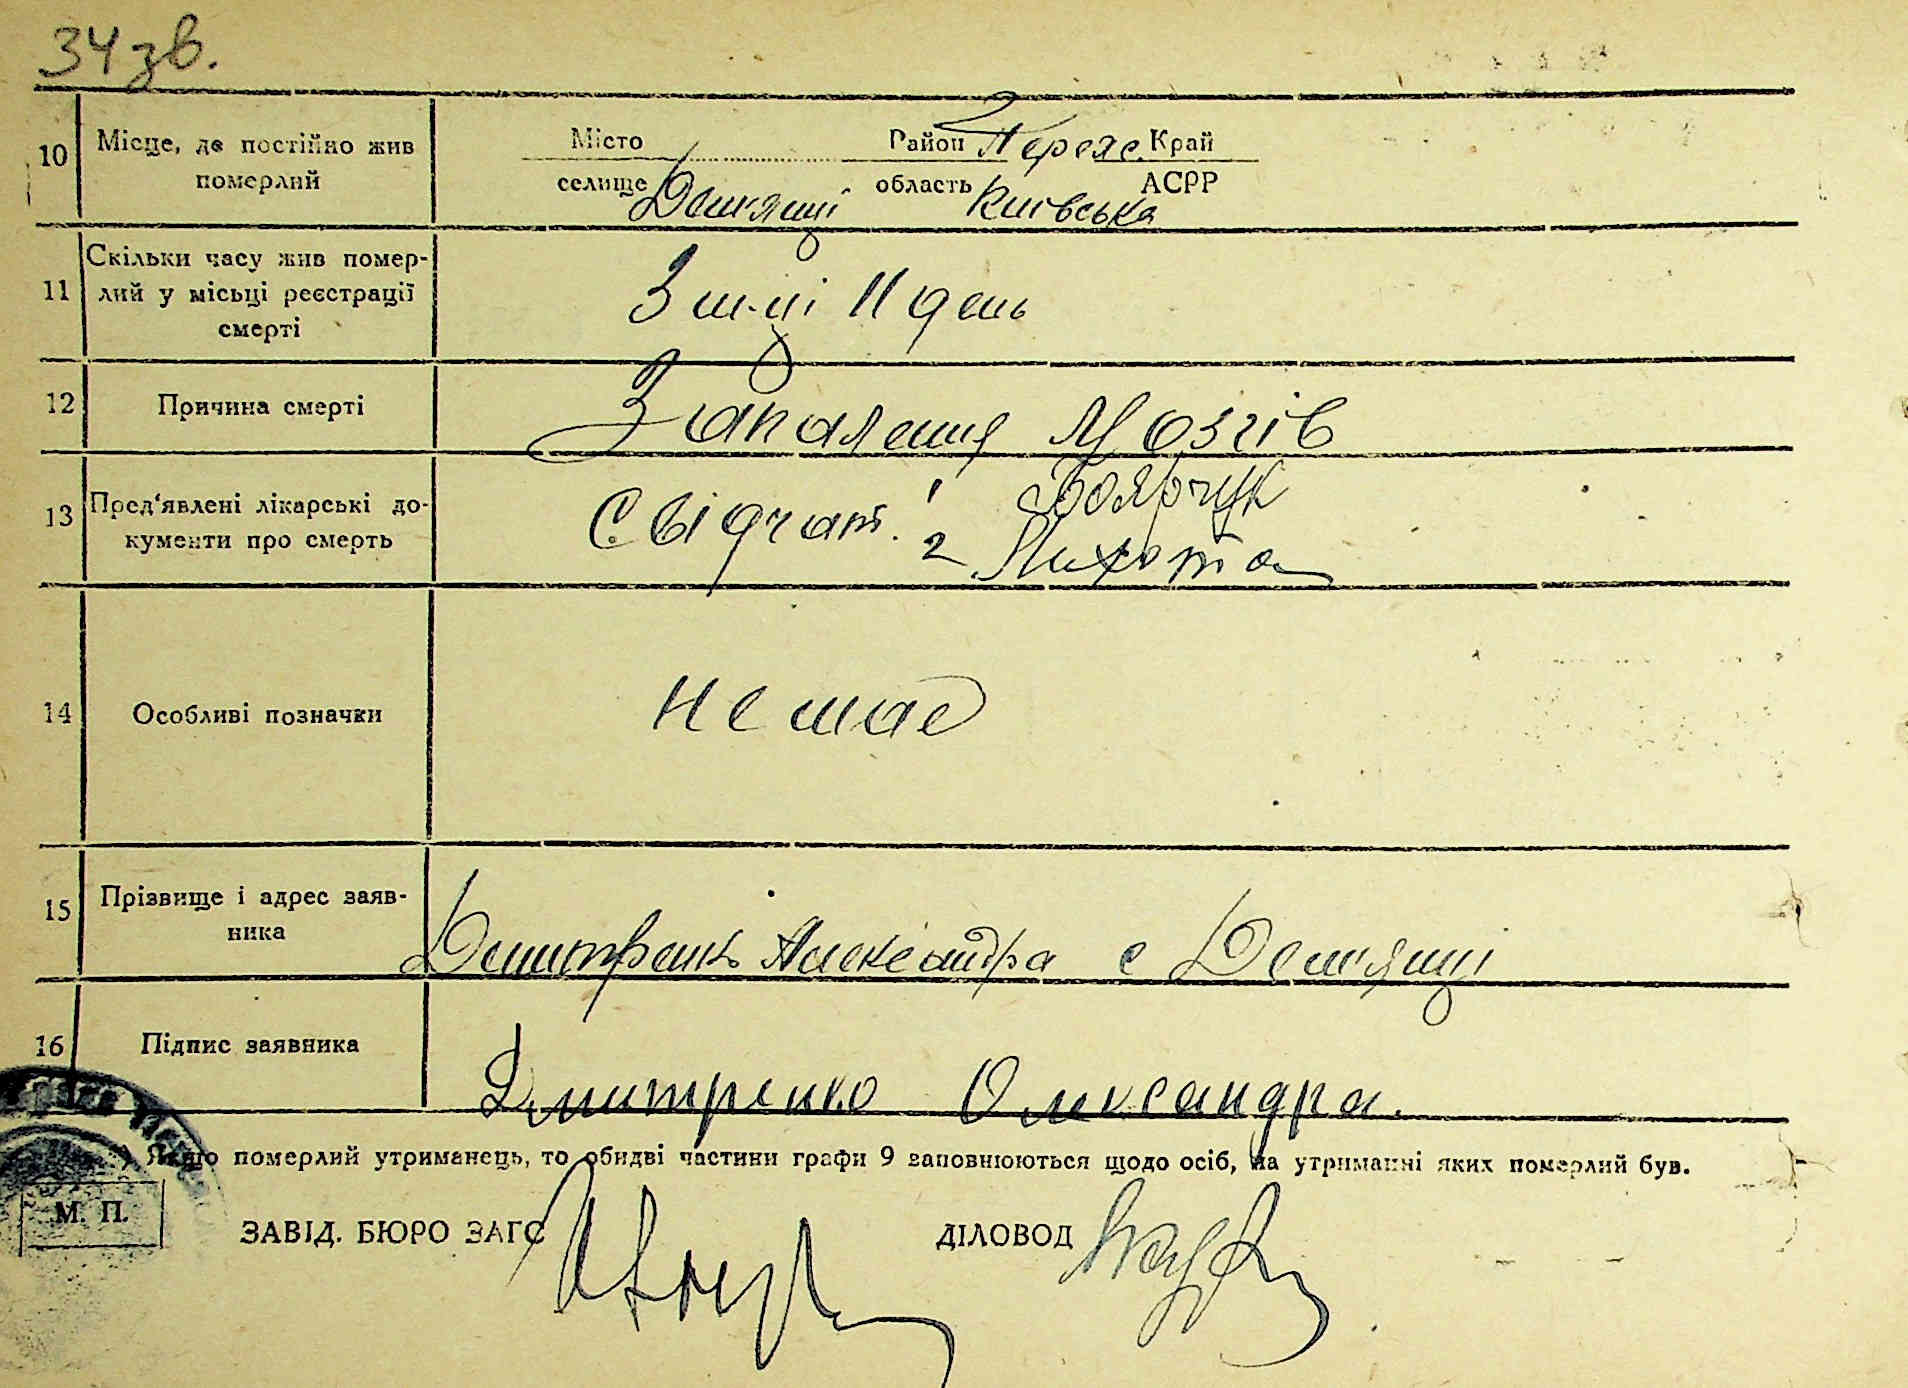 34 зв.
10 Місце, де постійно жив померлий
Місто Район Перояс. Край
селище Демянці область Київська АСРР
11 Скільки часу жив померлий у місьці реєстрації смерті
3 м-ці 11 день
12 Причина смерті
Запалення Мозгів
13 Пред'явлені лікарські документи про смерть
Свідчат. 1 Боярчук
2 Пихота
14 Особливі позначки
Немає
15 Прізвище і адрес заявника
Дмитренко Александра с Дем'янці
16 Підпис заявника
Дмитренко Олександра.
) Якщо померлий утриманець, то обидві частини графи 9 заповнюються щодо осіб, на утриманні яких померлий був.
М. П.
ЗАВІД. БЮРО ЗАГС
ДІЛОВОД